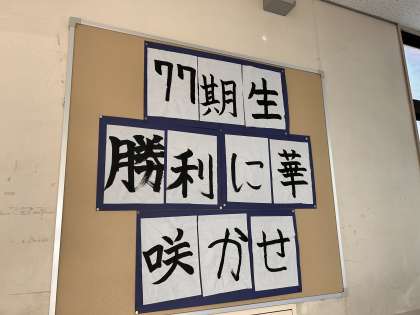 77期生
勝利に華
咲かせ